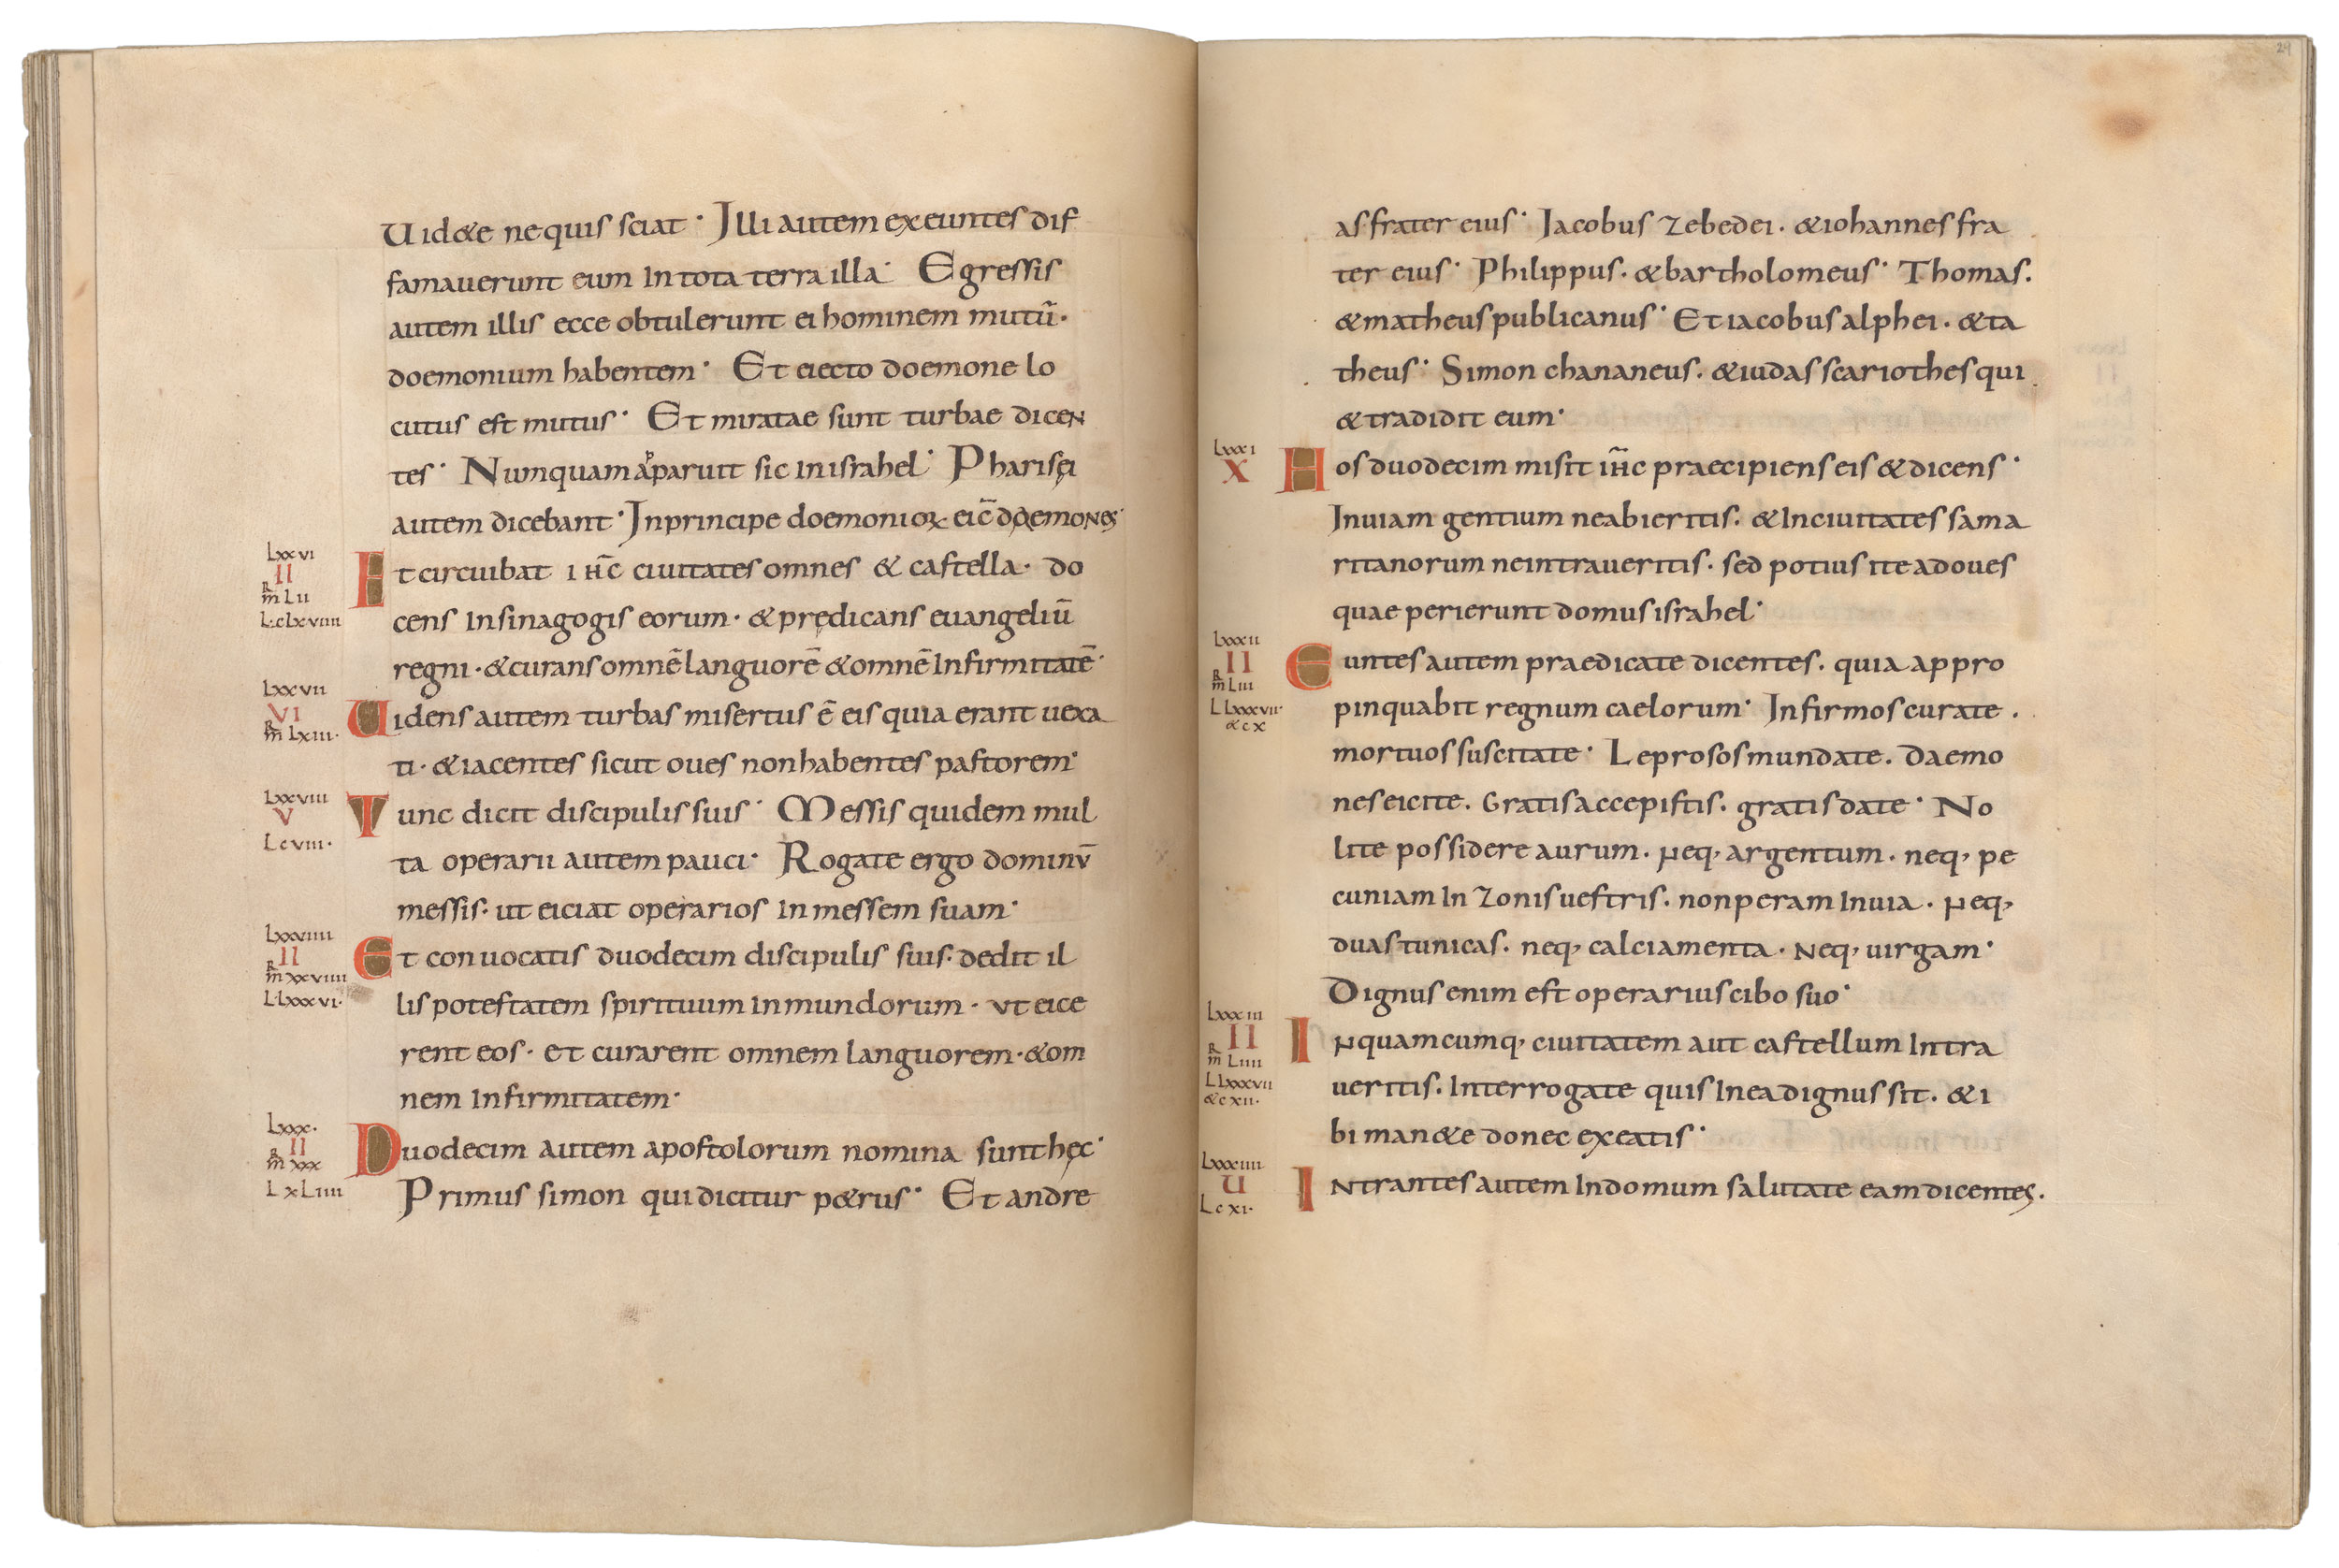 Uid&e nequis sciat· Illi autem exeuntes dif
famauerunt eum In tota terra illa· Egressis
autem illis ecce obtulerunt ei hominem mutū·
doemonium habentem· Et eiecto doemone lo
cutus est mutus· Et miratae sunt turbae dicen
tes· Numquam apparuit sic in israhel· Pharisęi
autem dicebant· In principe doemonioꝝ eic̄ doemones·
Lxxvi
II
R
m Lii
L·clxviiii
Et circuibat ihc̄ ciuitates omnes & castella· do
cens In sinagogis eorum· & prędicans euangeliū
regni· & curans omnē languorē & omnē Infirmitatē·
Lxxvii
VI
R
m Lxiii·
Uidens autem turbas misertus ē eis quia erant uexa
ti· & iacentes sicut oues non habentes pastorem·
Lxxviii
V
Lcviii·
Tunc dicit discipulis suis· Messis quidem mul
ta operarii autem pauci· Rogate ergo dominū
messis· ut eiciat operarios In messem suam·
Lxxviiii
II
R
m xxviiii
L·Lxxxvi·
Et conuocatis duodecim discipulis suis· dedit il
lis potestatem spirituum Inmundorum· ut eice
rent eos· et curarent omnem languorem· & om
nem Infirmitatem·
Lxxx·
II
R
m xxx
L xLiiii
Duodecim autem apostolorum nomina sunt hęc·
Primus simon qui dicitur p&rus· Et andre
29
as frater eius· Jacobus Zebedei· & iohannes fra
ter eius· Philippus· & bartholomeus· Thomas·
& matheus publicanus· Et iacobus alphei· & ta
theus· Simon chananeus· & iudas scariothes qui
& tradidit eum·
Lxxxi
X
Hos duodecim misit ihc̄ praecipiens eis & dicens·
In uiam gentium ne abieritis· & In ciuitates sama
ritanorum ne intraueritis· sed potius ite ad oues
quae perierunt domus israhel·
Lxxxii
II
R
m Liii
L Lxxxvii·
&cx
Euntes autem praedicate dicentes· quia appro
pinquabit regnum caelorum· Infirmos curate·
mortuos suscitate· Leprosos mundate· Daemo
nes eicite· Gratis accepistis· gratis date· No
lite possidere aurum· Neq, argentum· neq, pe
cuniam In Zonis uestris· non peram In uia· Neq,
duas tunicas· neq, calciamenta· Neq, uirgam·
Dignus enim est operarius cibo suo·
Lxxxiii
II
R
m Liiii
L Lxxxvii
&cxii·
IN quamcumq, ciuitatem aut castellum Intra
ueritis· Interrogate quis In ea dignus sit· & i
bi man&e donec exeatis·
Lxxxiiii
U
Lcxi·
INtrantes autem In domum salutate eam dicentes·